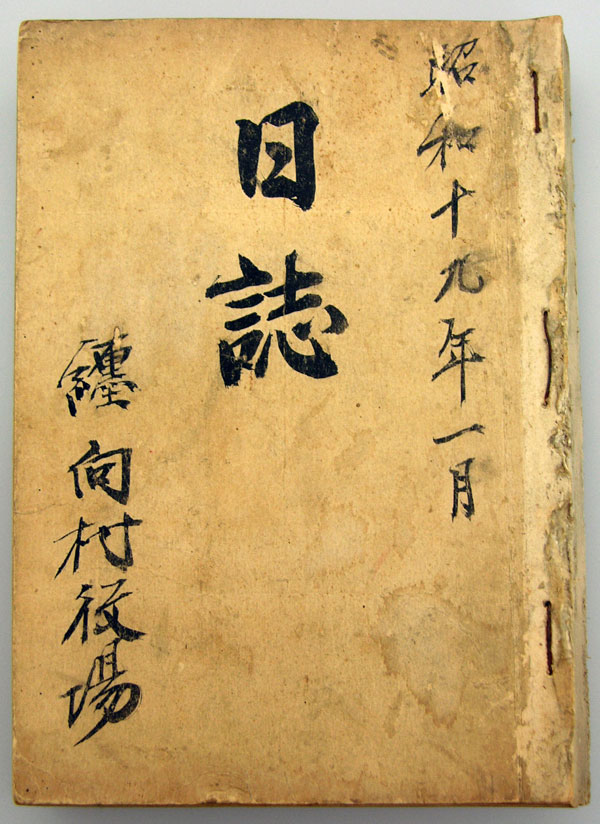 昭和十九年一月
日誌
纒向村役場